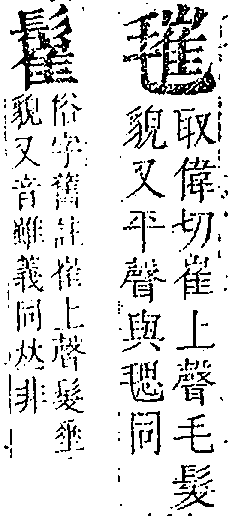 取偉切崔上聲毛髮
貌又平聲與毸同
俗字舊註崔上聲髮垂
貌又音雖義同𠀤非